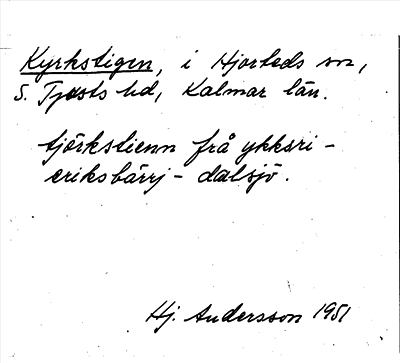 Kyrkstigen, i Hjorteds sn,
S. Tjusts hd, Kalmar län.
tjörkstienn frå ykksri-
eriksbärrj - dalsjö.
Hj. Andersson 1951